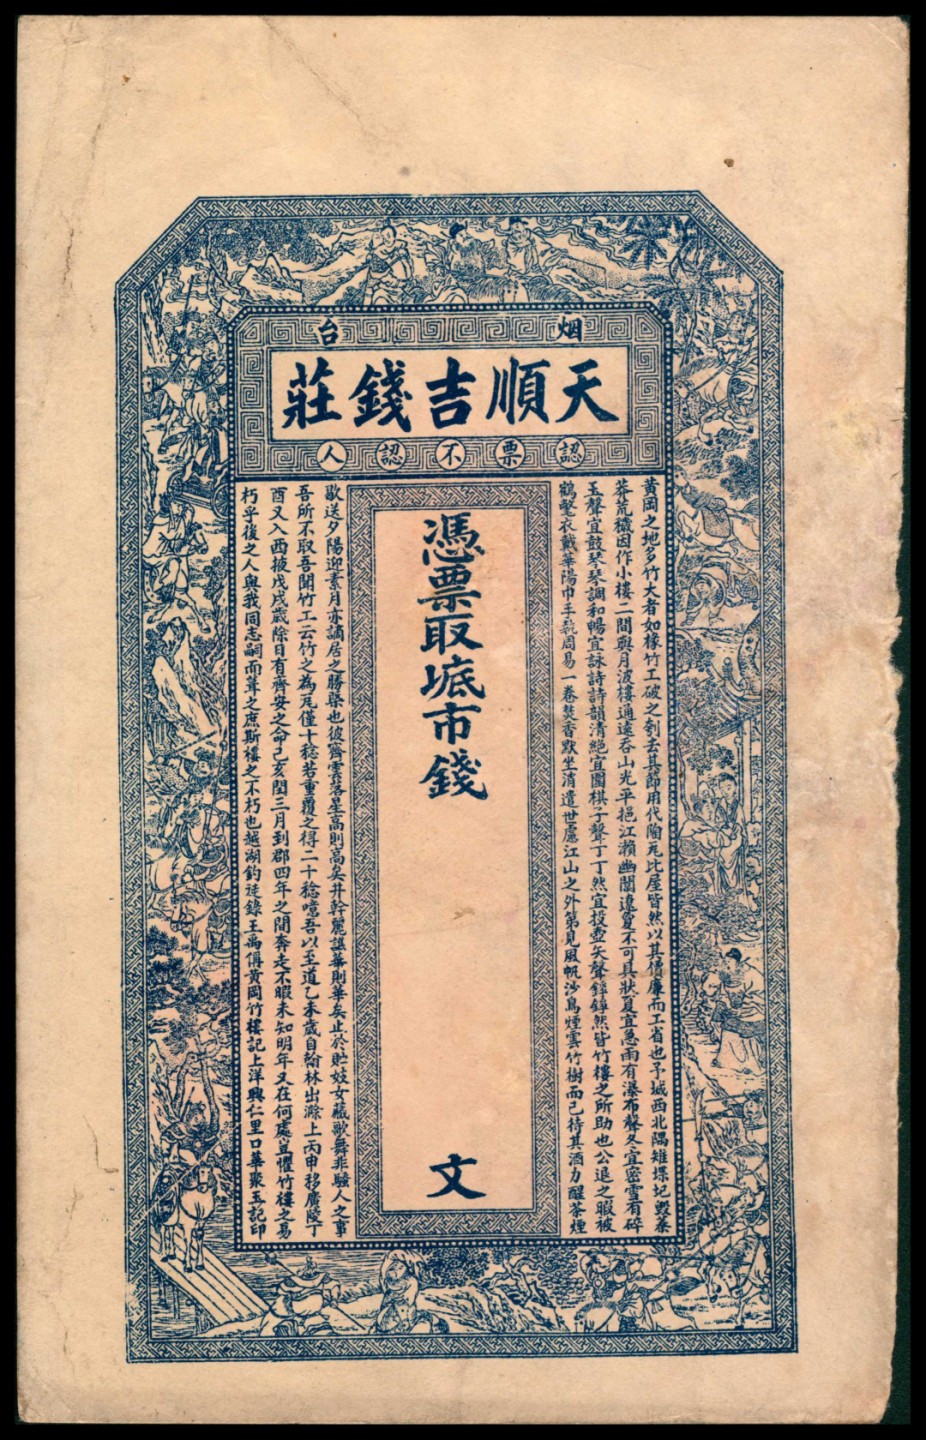 烟台
天順吉錢莊
認票不認人
黃岡之地多竹大者如椽竹工破之刳去其節用代陶瓦比屋皆然以其價廉而工省也予城西北隅雉堞圮毀蓁
莽荒穢因作小樓二間與月波樓通遠吞山光平挹江瀨幽闃遼敻不可具狀夏宜急雨有瀑布聲冬宜密雪有碎
玉聲宜鼓琴琴調和暢宜詠詩詩韻清絕宜圍棋子聲丁丁然宜投壺矢聲錚錚然皆竹樓之所助也公退之暇被
鶴氅衣戴華陽巾手執周易一卷焚香默坐消遣世慮江山之外第見風帆沙鳥煙雲竹樹而已待其酒力醒茶煙
憑票取市錢
文
歇送夕陽迎素月亦謫居之勝槩也彼齊雲落星高則高矣井幹麗譙華則華矣止於貯妓女藏歌舞非騷人之事
吾所不取吾聞竹工云竹之為瓦僅十稔若重覆之得二十稔噫吾以至道乙未歲自翰林出滁上丙申移廣陵丁
酉又入西掖戊戌歲除日有齊安之命己亥閏三月到郡四年之間奔走不暇未知明年又在何處豈懼竹樓之易
朽乎後之人與我同志嗣而葺之庶斯樓之不朽也越湖釣徒錄王禹偁黃岡竹樓記上洋興仁里口華聚玉記印